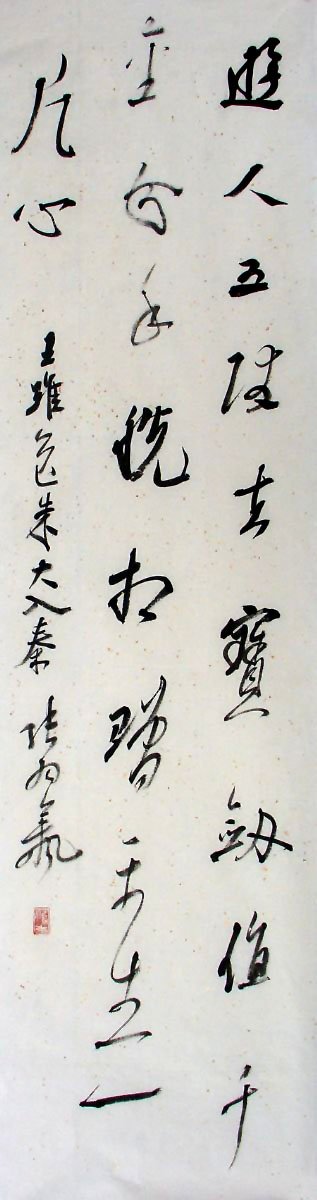 遊人五陵去寶劔值千
金分手脫相贈平生一
片心 王維送朱大入秦